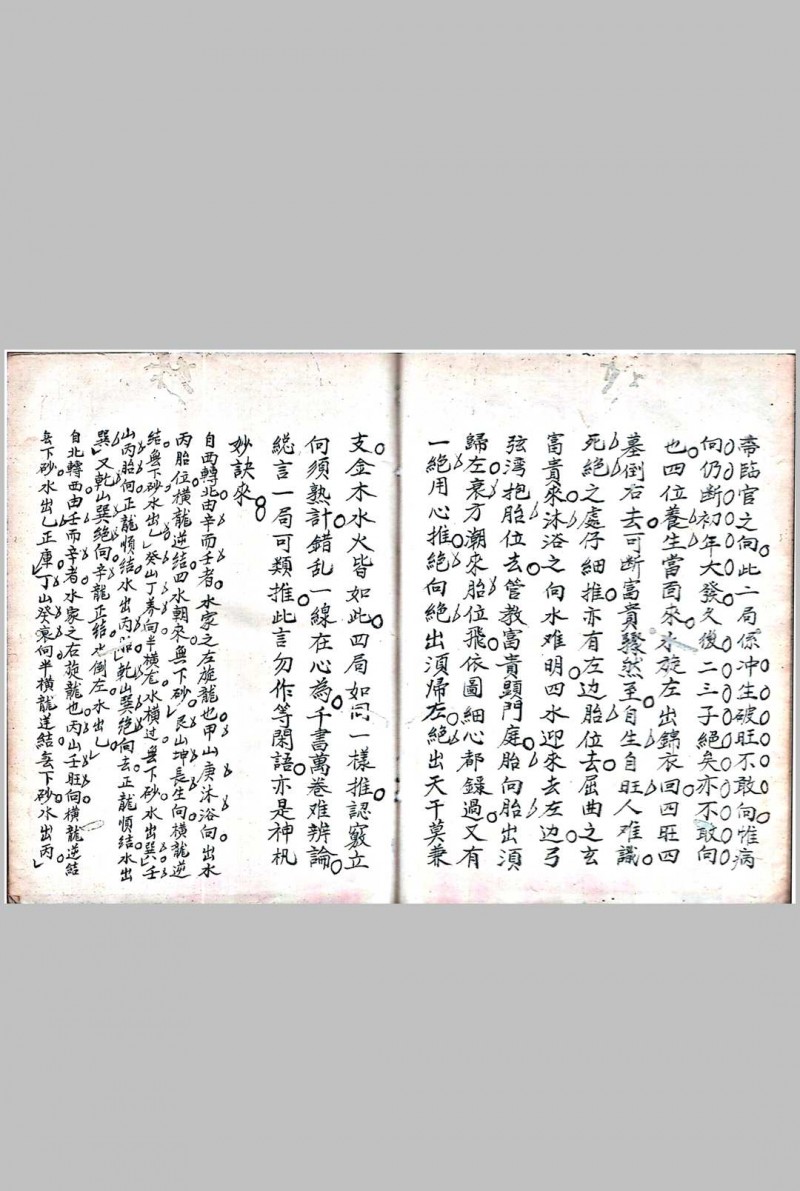 帝臨官之向此二局係冲生破旺不敢向惟病
向仍断初年大發久後二三子絕矣亦不敢向
也四位養生當面來水旋左出錦衣回四旺四
墓倒右去可断富貴驟然至自生自旺人难識
死絕之處仔細推亦有左边胎位去屈曲之玄
富貴來沐浴之向水难明四水迎來去左边弓
弦湾抱胎位去管教富貴顕門庭胎向胎出須
歸左衰方潮來胎位飛依圖細心都錄過又有
一絕用心推絕向絕出須帰左絕出天干莫兼
支金木水火皆如此四局如同一樣推認竅立
何須熟計錯乱一線在心為千書萬卷难辨論
総言一局可類推此言勿作等閑語亦是神机
妙訣來
自西轉北由辛而壬者水家之左旋龍也甲山庚沐浴向出水
丙胎位横龍逆结四水朝來無下砂艮山坤長生向横龍逆
结無下砂水出乙癸山丁養向半横龙水横过無下砂水出巽壬
山丙胎向正龍順结水出丙乾山巽絕向去正龍順结水出
巽又乾山巽絕向辛龍正结也倒左水出乙
自北轉西由壬而辛者水家之右旋龍也丙山壬旺向横龍逆結
無下砂水出乙正庫丁山癸衰向半横龍逆结無下砂水出丙